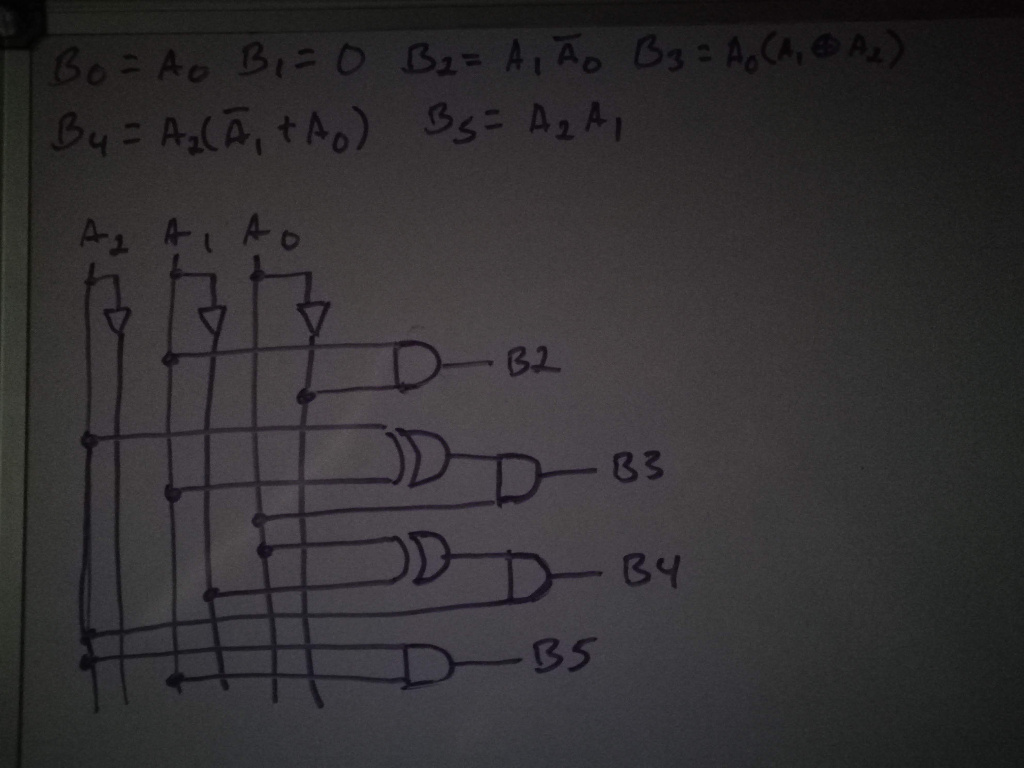 B₀ = A₀ B₁ = 0 B₂ = A₁ Ā₀ B₃ = A₀(A₁ ⊕ A₂)
B₄ = A₂(Ā₁ + A₀) B₅ = A₂ A₁
A₂ A₁ A₀
B2
B3
B4
B5